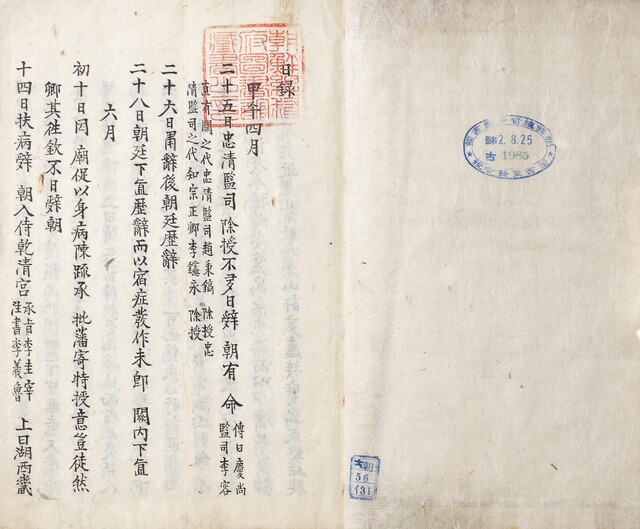 日錄
甲午四月
二十五日忠淸監司 除授不多日辭 朝有 命 傳曰慶尙
監司李容
直有闕之代忠淸監司趙秉鎬 除授忠
淸監司之代知宗正卿李永 除授
二十六日肅辭後朝廷歷辭
二十八日朝廷下直歷辭而以宿症發作未卽 闕內下直
六月
初十日因 廟促以身病陳疏承 批藩寄特授意豈徒然
卿其往欽不日辭朝
十四日扶病辭 朝入侍乾淸宮 承旨李圭宰
注書李義魯 上曰湖西畿
朝鮮總督府圖書館藏書之印
2.8.25
古 1985
古朝
56
131